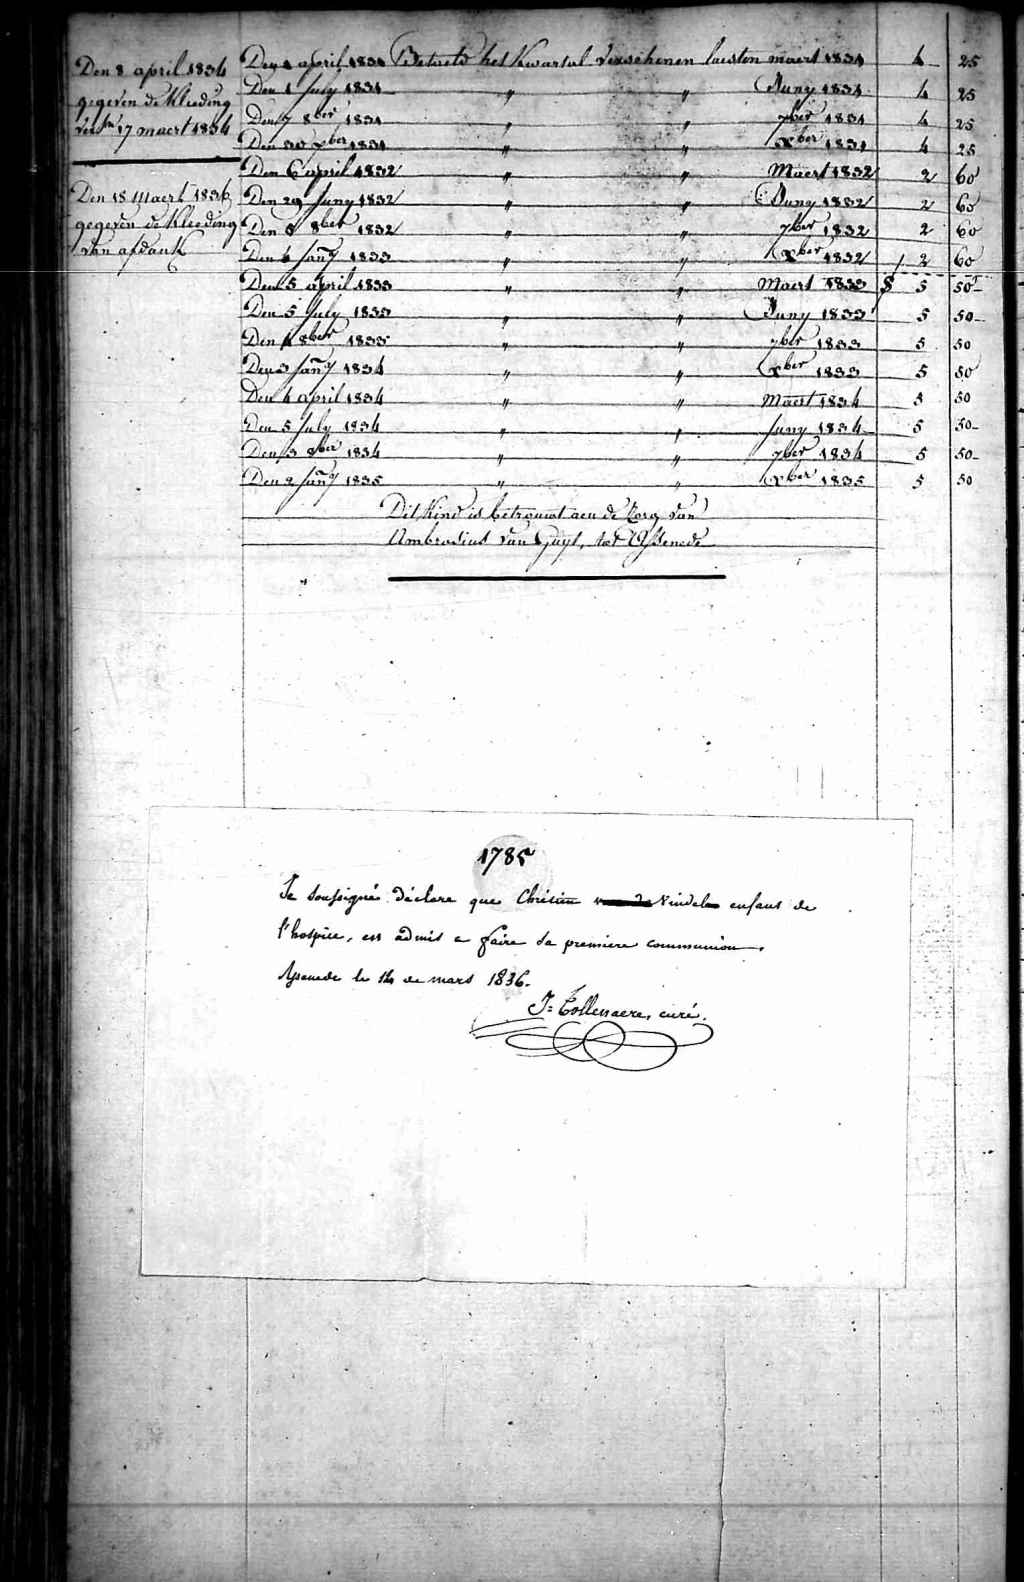 Den 8 april 1834
gegeven de Kleeding
17 maert 1834
Den 18 Maert 1836
gegeven de Kleeding
van afdank
Den april 1831 Betaeld het Kwartal verschenen laesten maert 1831 4 25
Den 1 July 1831 " " Juny 1831 4 25
Den 7 8ber 1831 " " 7ber 1831 4 25
Den 30 xber 1831 " " xber 1831 4 25
Den 6 april 1832 " " Maert 1832 2 60
Den 29 Juny 1832 " " Juny 1832 2 60
Den 8 8ber 1832 " " 7ber 1832 2 60
Den 4 Jany 1833 " " xber 1832 2 60
Den 5 april 1833 " " Maert 1833 5 50
Den 5 July 1833 " " Juny 1833 5 50
Den 8ber 1833 " " 7ber 1833 5 50
Den 3 Jany 1834 " " xber 1833 5 50
Den 4 april 1834 " " Maert 1834 5 50
Den 5 July 1834 " " Juny 1834 5 50
Den 3 8ber 1834 " " 7ber 1834 5 50
Den 2 Jany 1835 " " xber 1835 5 50
Dit Kind is betrouwt aen de Zorg van
Ambrosius van Guyt, tot Assenede
1785
Je soussigné déclare que Chrétien Vindel enfant de
l'hospice, est admis a faire sa premiere communion.
Assenede le 14 de mars 1836.
J= Tollenaere, curé.